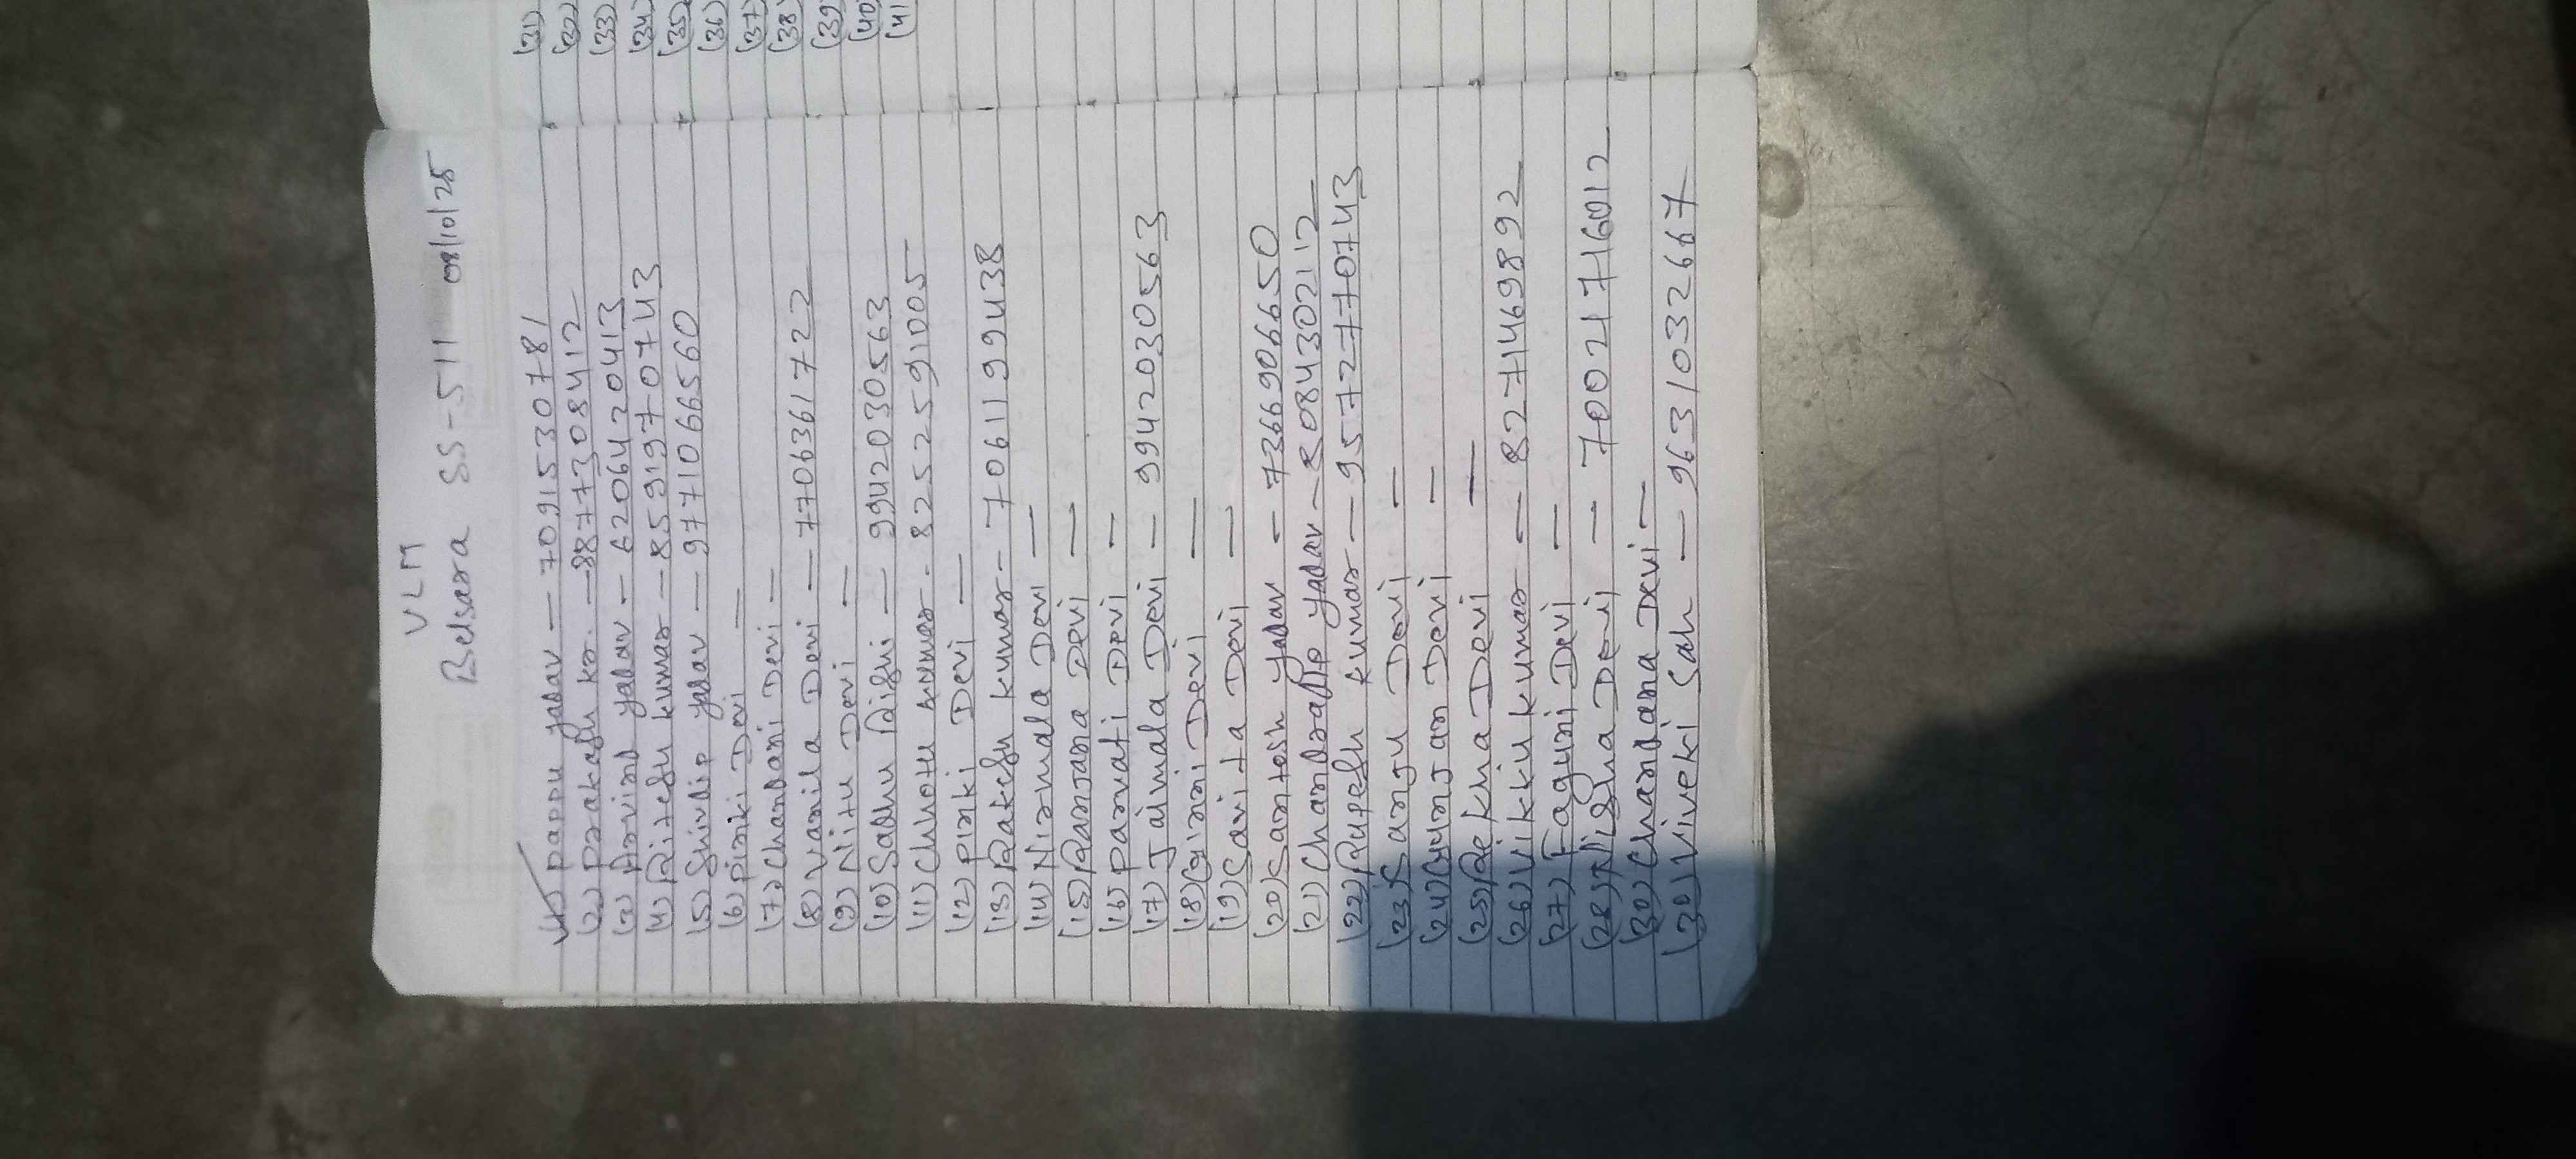 VLM
Belsara SS-511 08/10/25
(1) pappu yadav — 7091530781
(2) prakash kr. — 8877308412
(3) Arvind yadav — 6206420413
(4) Ritesh kumar — 8591970743
(5) Shivdip yadav — 9771066560
(6) pinki Devi —
(7) Chandani Devi —
(8) Vanila Devi — 7706361722
(9) Nitu Devi —
(10) Sadhu Rishi — 9942030563
(11) Chhotu kumar - 8252591005
(12) pinki Devi —
(13) Rakesh kumar - 7061199438
(14) Nirmala Devi —
(15) Ranjana Devi —
(16) parvati Devi —
(17) Jaimala Devi — 9942030563
(18) Ginni Devi —
(19) Savita Devi —
(20) Santosh yadav — 7366906650
(21) Chandradip yadav — 8084302112
(22) Rupesh kumar — 9572770743
(23) Sanju Devi —
(24) Gunjan Devi —
(25) Rekha Devi —
(26) Vikki kumar — 8271469892
(27) Faguni Devi —
(28) Nisha Devi — 7002176012
(30) Chandana Devi —
(30) Viveki Sah — 9631032667
(31)
(32)
(33)
(34)
(35)
(36)
(37)
(38)
(39
(40
(41